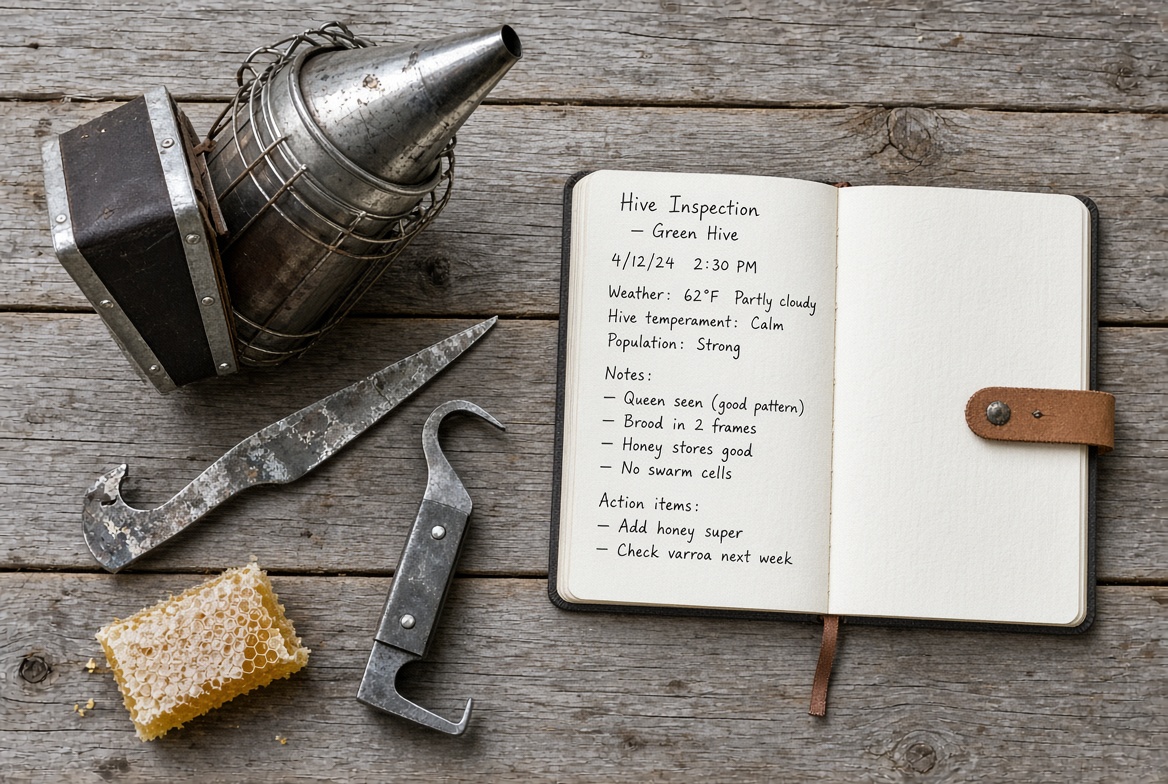 Hive Inspection
— Green Hive
4/12/24 2:30 PM
Weather: 62°F Partly cloudy
Hive temperament: Calm
Population: Strong
Notes:
— Queen seen (good pattern)
— Brood in 2 frames
— Honey stores good
— No swarm cells
Action items:
— Add honey super
— Check varroa next week